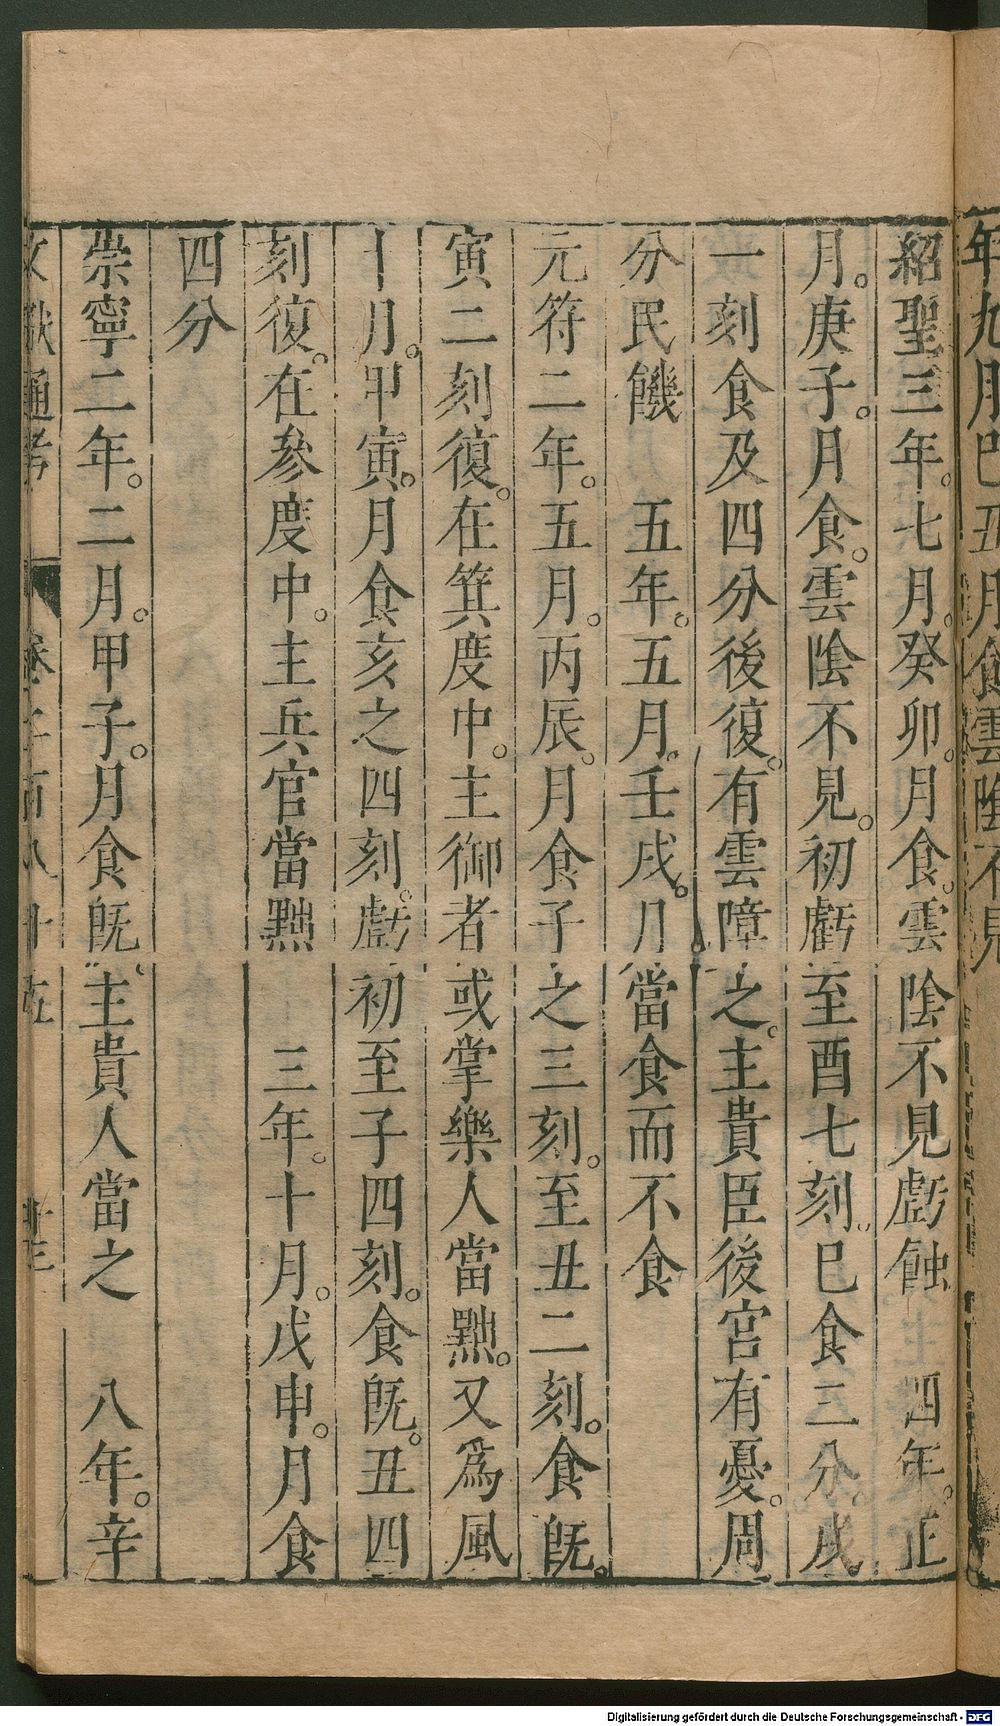 年九月巳丑月食雲陰不見
紹聖三年。七月。癸卯。月食。雲陰不見虧蝕 四年。正
月。庚子。月食。雲陰不見。初虧至酉七刻。巳食三分。戌
一刻食及四分後復。有雲障之。主貴臣後宮有憂。周
分民饑 五年。五月。壬戌。月當食而不食
元符二年。五月。丙辰。月食子之三刻。至丑二刻。食既。
寅二刻復。在箕度中。主御者或掌樂人當黜。又為風
十月。甲寅。月食亥之四刻。虧初至子四刻。食既。丑四
刻復。在參度中。主兵官當黜 三年。十月。戊申。月食
四分
崇寧二年。二月。甲子。月食既。主貴人當之 八年。辛
文獻通考 卷二百八十五
Digitalisierung gefördert durch die Deutsche Forschungsgemeinschaft - DFG